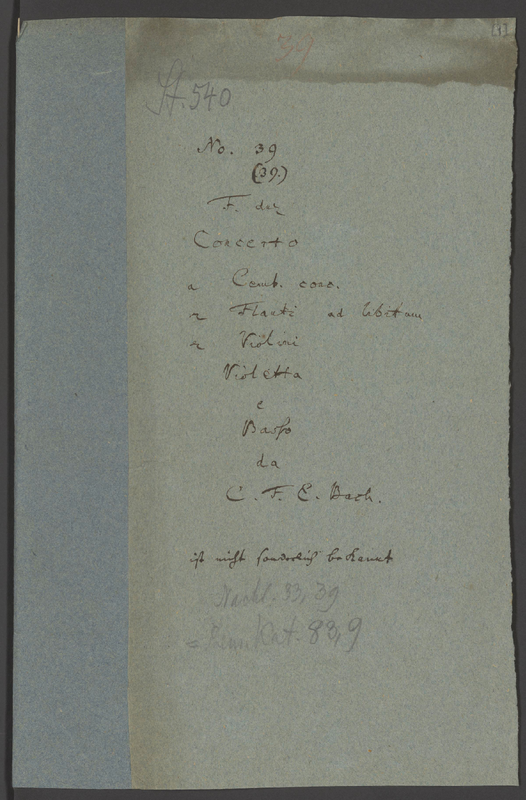 [1]
39
St. 540
No. 39
(39.)
F. dur
Concerto
a Cemb. conc.
2 Flauti ad libitum
2 Violini
Violetta
e
Basso
da
C. F. E. Bach.
ist nicht sonderlich bekannt
Nachl. 33, 39
= Them. Kat. 83,9